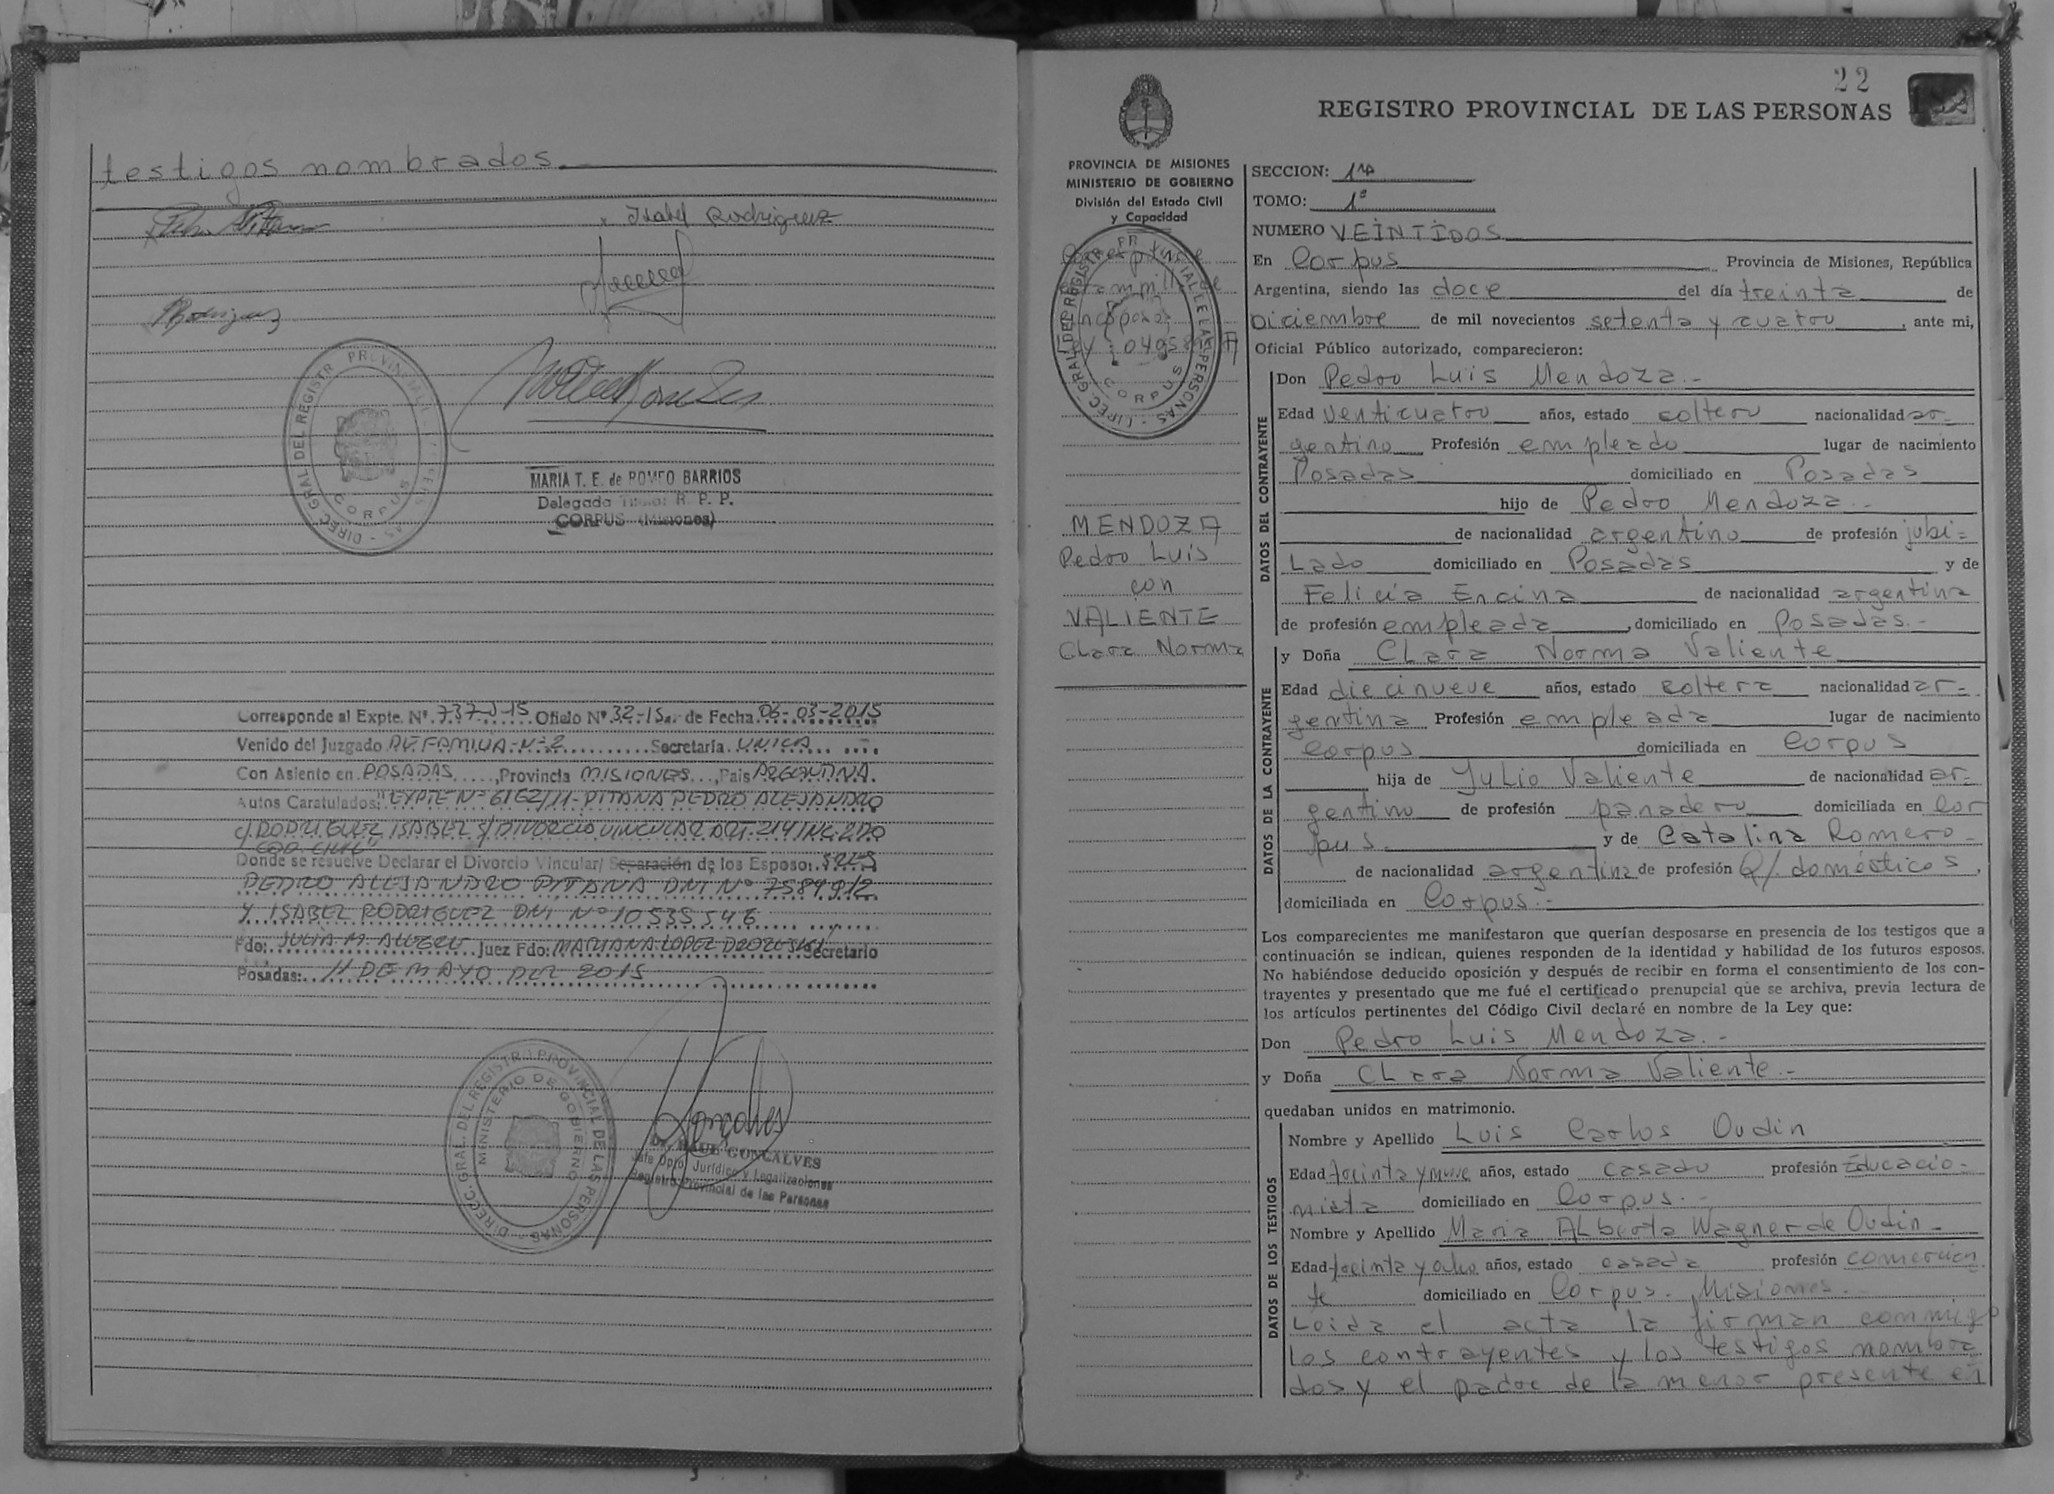 testigos nombrados.
Isabel Rodriguez
DIREC. GRAL. DEL REGISTRO PROVINCIAL DE LAS PERSONAS
CORPUS
MARIA T. E. de ROMEO BARRIOS
Delegada Titular R. P. P.
CORPUS (Misiones)
Corresponde al Expte. Nº 737-J-15 Oficio Nº 32-15 de Fecha 06-03-2015
Venido del Juzgado DE FAMILIA-N-2 Secretaría UNICA
Con Asiento en POSADAS, Provincia MISIONES, País ARGENTINA.
Autos Caratulados: "EXPTE Nº 6162/11-PITANA PEDRO ALEJANDRO
c/ RODRIGUEZ ISABEL s/ DIVORCIO VINCULAR ART. 214 INC. 2DO
COD. CIVIL"
Donde se resuelve Declarar el Divorcio Vincular/ Separación de los Esposo: SRES
PEDRO ALEJANDRO PITANA DNI Nº 7584912
Y ISABEL RODRIGUEZ DNI Nº 10535546
Fdo: JULIA M. ALEGRE Juez Fdo: MARIANA LOPEZ Secretario
Posadas: 11 DE MAYO DEL 2015
DIREC. GRAL. DEL REGISTRO PROVINCIAL DE LAS PERSONAS
MINISTERIO DE GOBIERNO
GONCALVES
Jefe Dpto. Jurídico y Legalizaciones
Registro Provincial de las Personas
22
REGISTRO PROVINCIAL DE LAS PERSONAS
PROVINCIA DE MISIONES
MINISTERIO DE GOBIERNO
División del Estado Civil
y Capacidad
Corresponde
estampillado
DIREC. GRAL. DEL REGISTRO PROVINCIAL DE LAS PERSONAS
CORPUS
MENDOZA
Pedro Luis
con
VALIENTE
Clara Norma
SECCION: 1ra
TOMO: 1º
NUMERO VEINTIDOS
En Corpus Provincia de Misiones, República
Argentina, siendo las doce del día treinta de
Diciembre de mil novecientos setenta y cuatro, ante mi,
Oficial Público autorizado, comparecieron:
DATOS DEL CONTRAYENTE
Don Pedro Luis Mendoza.-
Edad venticuatro años, estado soltero nacionalidad ar-
gentino Profesión empleado lugar de nacimiento
Posadas domiciliado en Posadas
hijo de Pedro Mendoza.-
de nacionalidad argentino de profesión jubi=
lado domiciliado en Posadas y de
Felicia Encina de nacionalidad argentina
de profesión empleada, domiciliado en Posadas.-
DATOS DE LA CONTRAYENTE
y Doña Clara Norma Valiente
Edad diecinueve años, estado soltera nacionalidad ar-
gentina Profesión empleada lugar de nacimiento
Corpus domiciliada en Corpus
hija de Julio Valiente de nacionalidad ar-
gentino de profesión panadero domiciliada en Cor
pus. y de Catalina Romero-
de nacionalidad argentina de profesión Q/. domésticos,
domiciliada en Corpus.-
Los comparecientes me manifestaron que querían desposarse en presencia de los testigos que a
continuación se indican, quienes responden de la identidad y habilidad de los futuros esposos.
No habiéndose deducido oposición y después de recibir en forma el consentimiento de los con-
trayentes y presentado que me fué el certificado prenupcial que se archiva, previa lectura de
los artículos pertinentes del Código Civil declaré en nombre de la Ley que:
Don Pedro Luis Mendoza.-
y Doña Clara Norma Valiente.-
quedaban unidos en matrimonio.
DATOS DE LOS TESTIGOS
Nombre y Apellido Luis Carlos Oudin
Edad treinta y nueve años, estado casado profesión Educacio-
nista domiciliado en Corpus.-
Nombre y Apellido Maria Alberta Wagner de Oudin-
Edad treinta y ocho años, estado casada profesión comercian
te domiciliado en Corpus- Misiones.-
Leida el acta la firman conmigo
los contrayentes y los testigos nombra
dos y el padre de la menor presente en